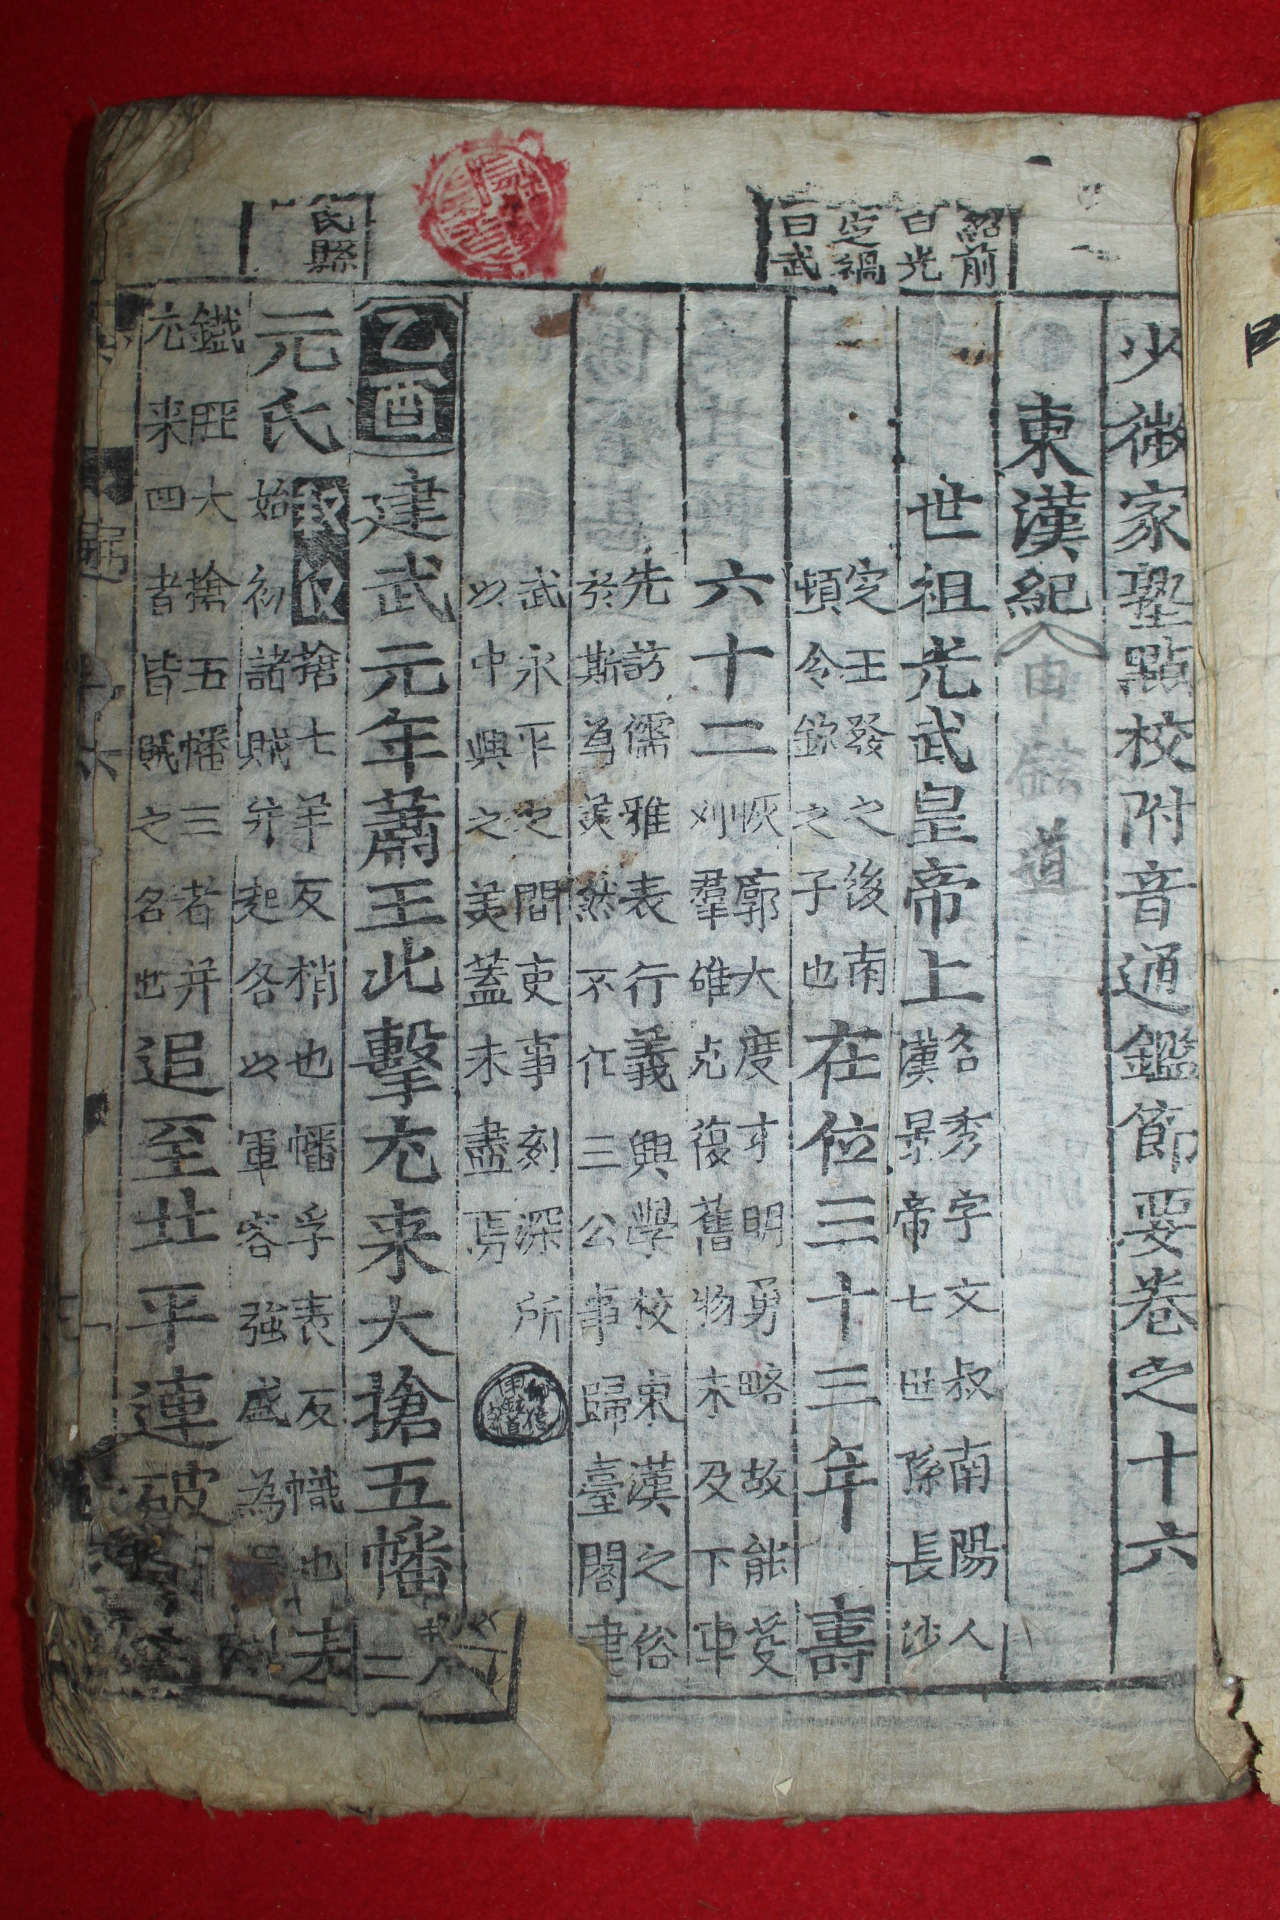 少微家塾點校附音通鑑節要卷之十六
東漢紀
申 道
世祖光武皇帝上
名秀字文叔南陽人
漢景帝七世孫長沙
定王發之後南
頓令欽之子也
在位三十三年 壽
六十二
恢廓大度才明勇略故能芟
刈羣雄克復舊物未及下車
先訪儒雅表行義興學校東漢之俗
於斯為美然不任三公事歸臺閣建
武永平之間吏事刻深所
以中興之美蓋未盡焉
紹前
曰光
定禍
曰武
乙酉
建武元年蕭王北擊尤来大搶五幡
元氏
搶七羊反梢也幡孚袁反幟也
始初諸賊并起各以軍容強盛為
鐵脛大搶五幡三者并
尤来四者皆賊之名也
追至北平連破
氏縣